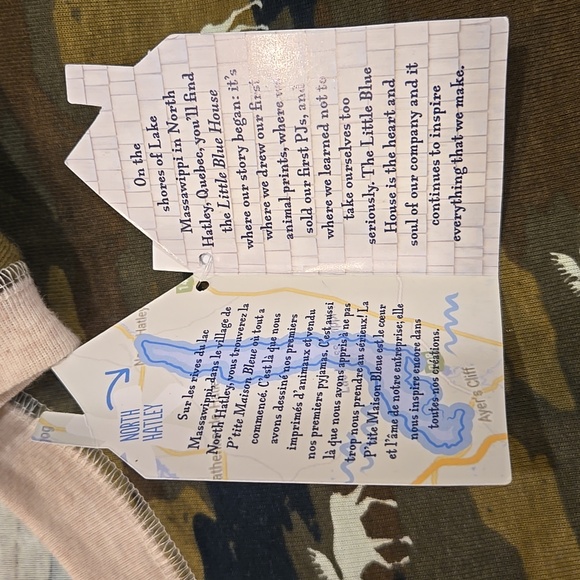 On the
shores of Lake
Massawippi in North
Hatley, Quebec, you'll find
the Little Blue House
where our story began: it's
where we drew our first
animal prints, where we
sold our first PJs, and
where we learned not to
take ourselves too
seriously. The Little Blue
House is the heart and
soul of our company and it
continues to inspire
everything that we make.
NORTH
HATLEY
Sur les rives du lac
Massawippi, dans le village de
North Hatley, vous trouverez la
P'tite Maison Bleue où tout a
commencé. C'est là que nous
avons dessiné nos premiers
imprimés d'animaux et vendu
nos premiers pyjamas. C'est aussi
là que nous avons appris à ne pas
trop nous prendre au sérieux! La
P'tite Maison Bleue est le cœur
et l'âme de notre entreprise; elle
nous inspire encore dans
toutes nos créations.
Hatley
Ayer's Cliff